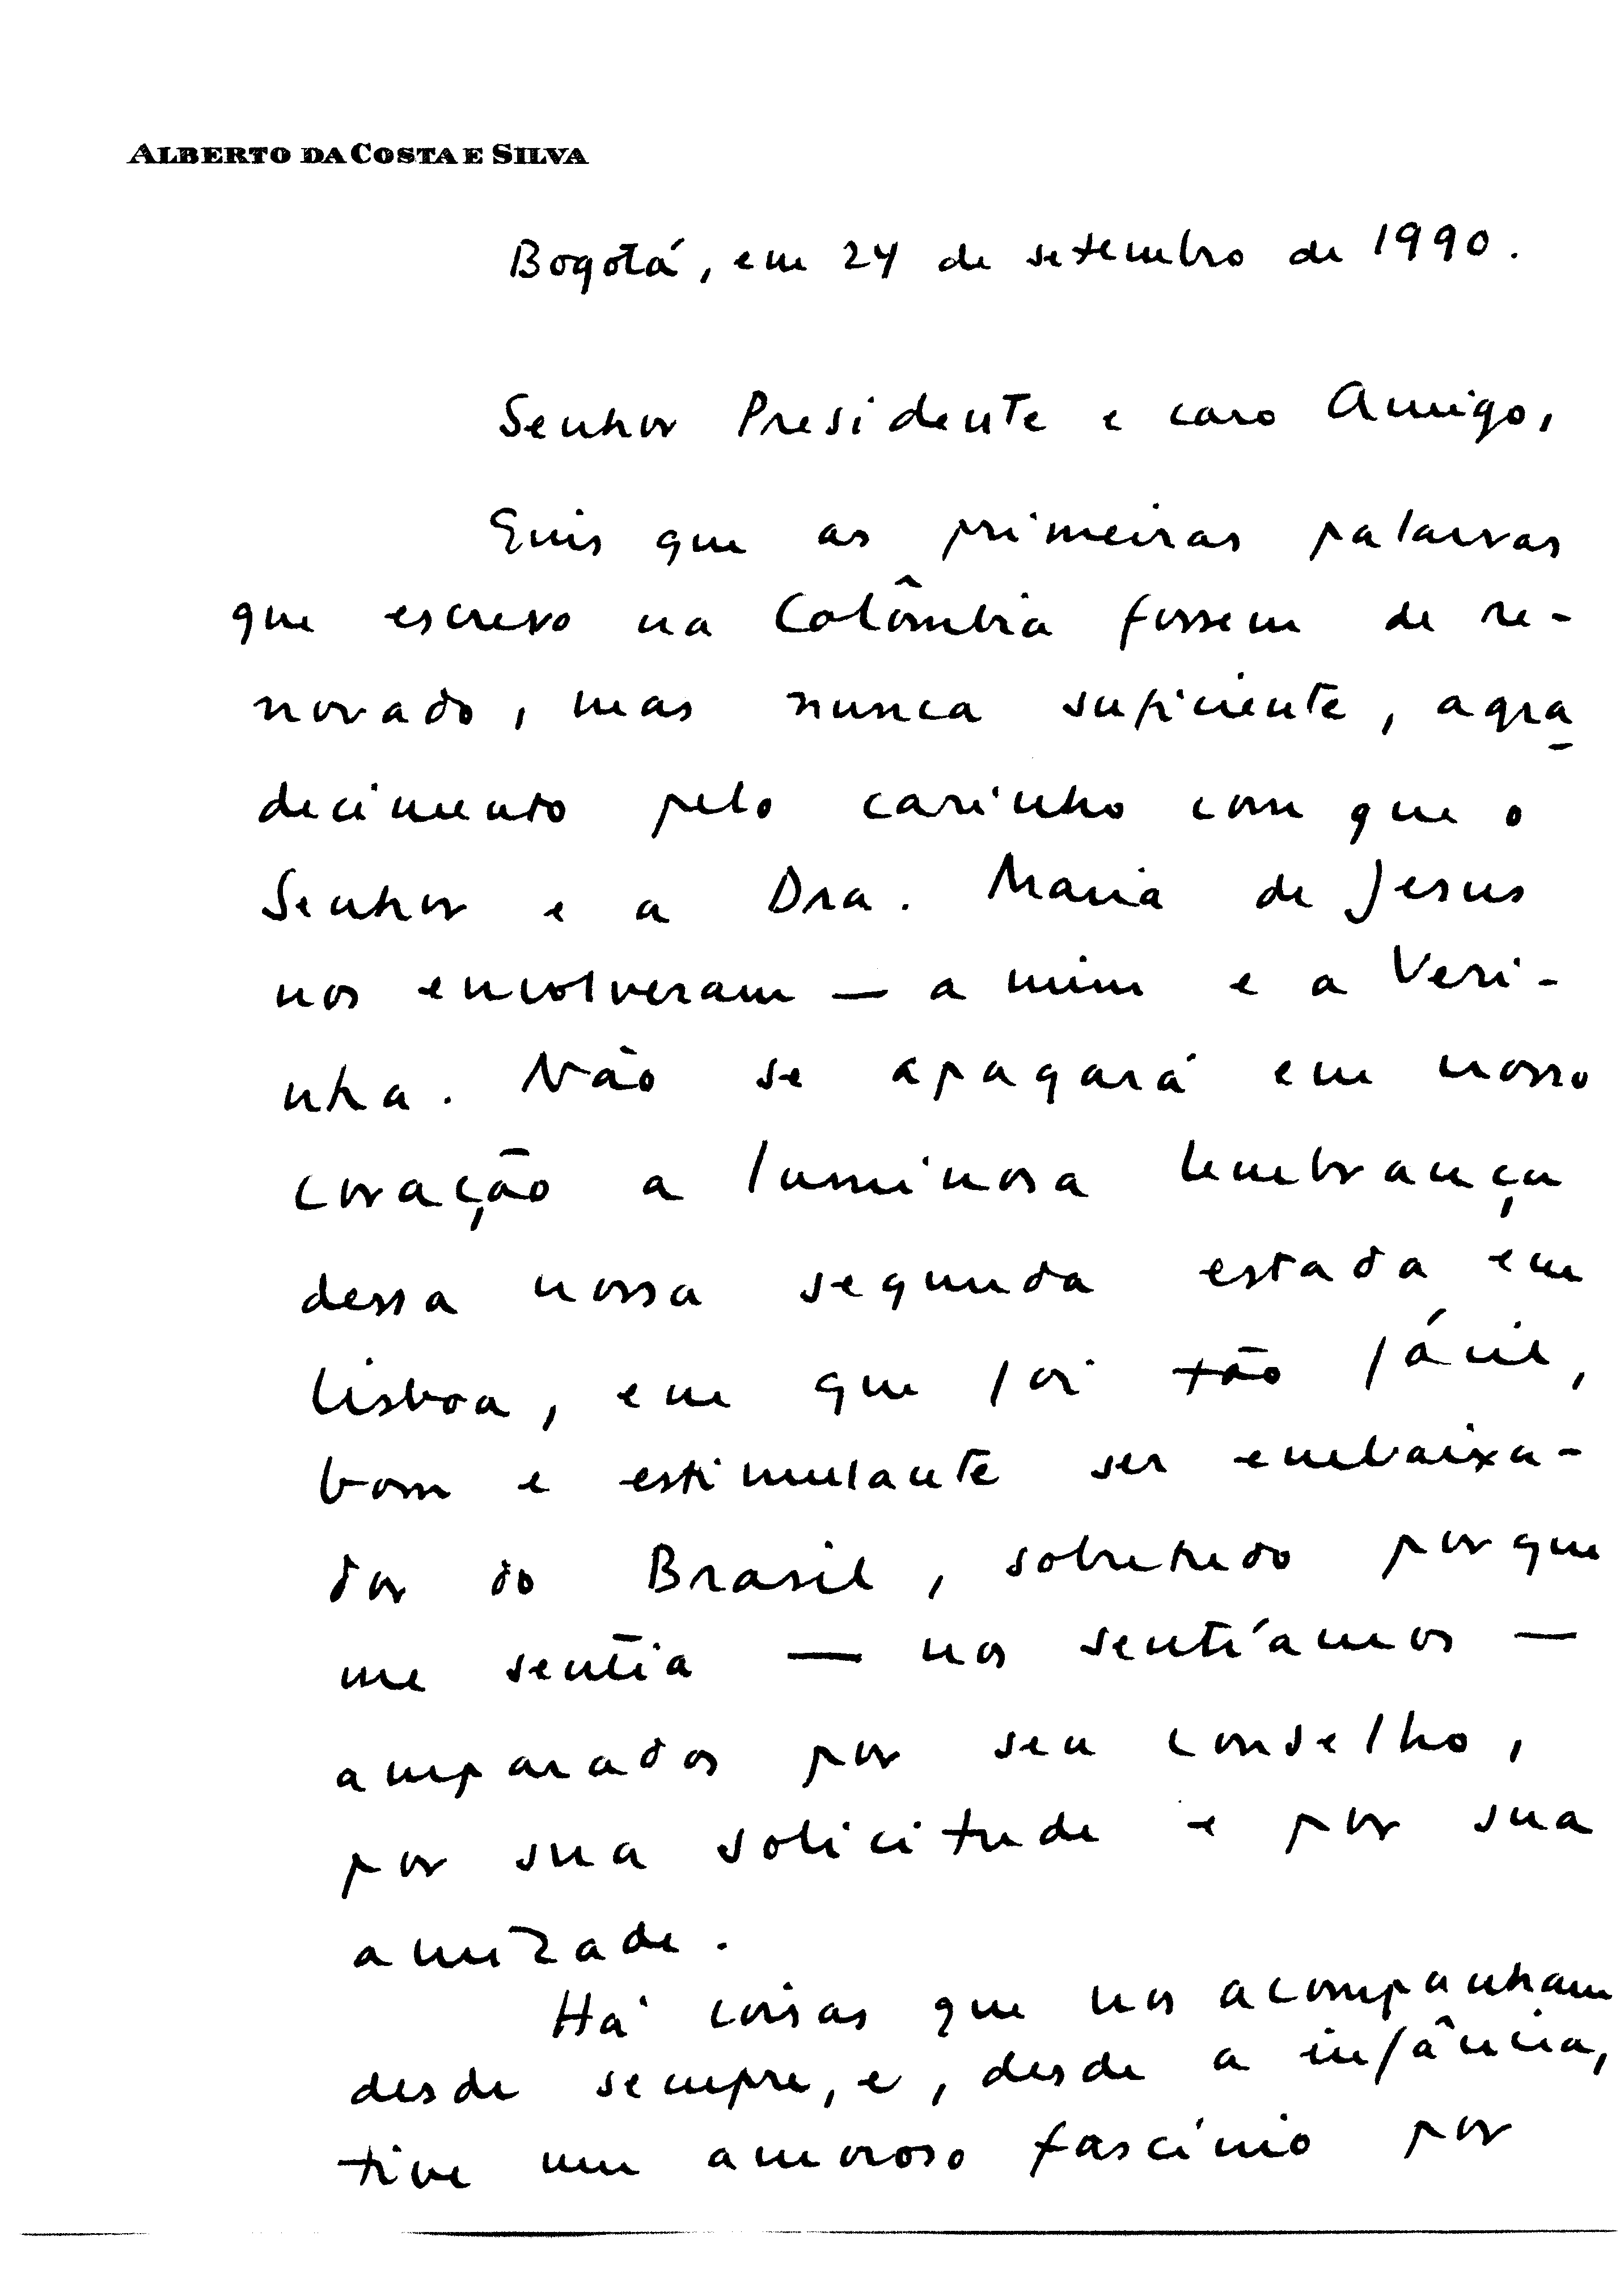 ALBERTO DA COSTA E SILVA
Bogotá, em 24 de setembro de 1990.
Senhor Presidente e caro Amigo,
Quis que as primeiras palavras
que escrevo na Colômbia fossem de re-
novado, mas nunca suficiente, agra-
decimento pelo carinho com que o
Senhor e a Dra. Maria de Jesus
nos envolveram — a mim e a Veri-
nha. Não se apagará em nosso
coração a luminosa lembrança
dessa nossa segunda estada em
Lisboa, em que foi tão fácil,
bom e estimulante ser embaixa-
dor do Brasil, sobretudo porque
me sentia — nos sentíamos —
amparados por seu conselho,
por sua solicitude e por sua
amizade.
Há coisas que nos acompanham
desde sempre, e, desde a infância,
tive um amoroso fascínio por